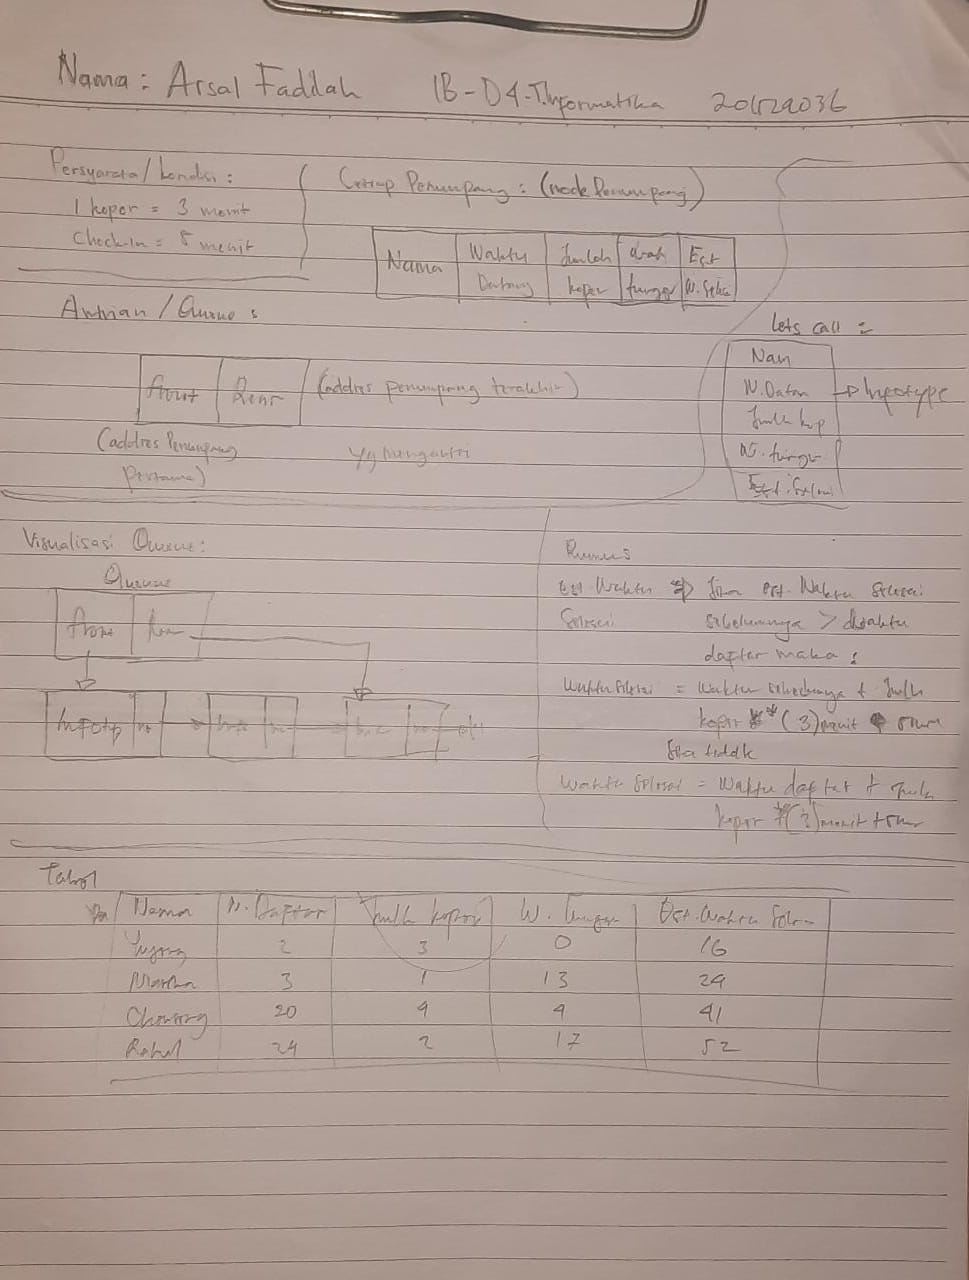 Nama : Arsal Fadllah 1B - D4 - T.Informatika
Persyarata / kondisi :
1 koper = 3 menit
Check-In = 5 menit
Setiap Penumpang : (node Penumpang)
Nama
Waktu Datang
Jumlah koper
tunggu
Est W. Selsai
Antrian / Queue :
front Rear (addres penumpang terakhir)
(addres Penumpang Pertama)
yg mengantri
Lets call :
Nam
W. Datan → Infotype
Jumlh kop
W. tunggu
Est. Selsai
Visualisasi Queue :
Queue
front
Infotp
Rumus
Est. Waktu ⇒ Jika est. Waktu Selesai
Selesai sebelumnya > dwaktu
daftar maka :
Waktu Selesai = Waktu sebelumnya + Jumlh
koper * (3) menit
Jika tiddk
Waktu Selesai = Waktu daftar + Jumlh
koper * (3) menit +
Tabel
Nama W. Daftar Jumlh koper W. Tunggu Est. Waktu Selesai
2 3 0 16
Martha 3 1 13 24
20 4 4 41
Rahel 24 2 17 52